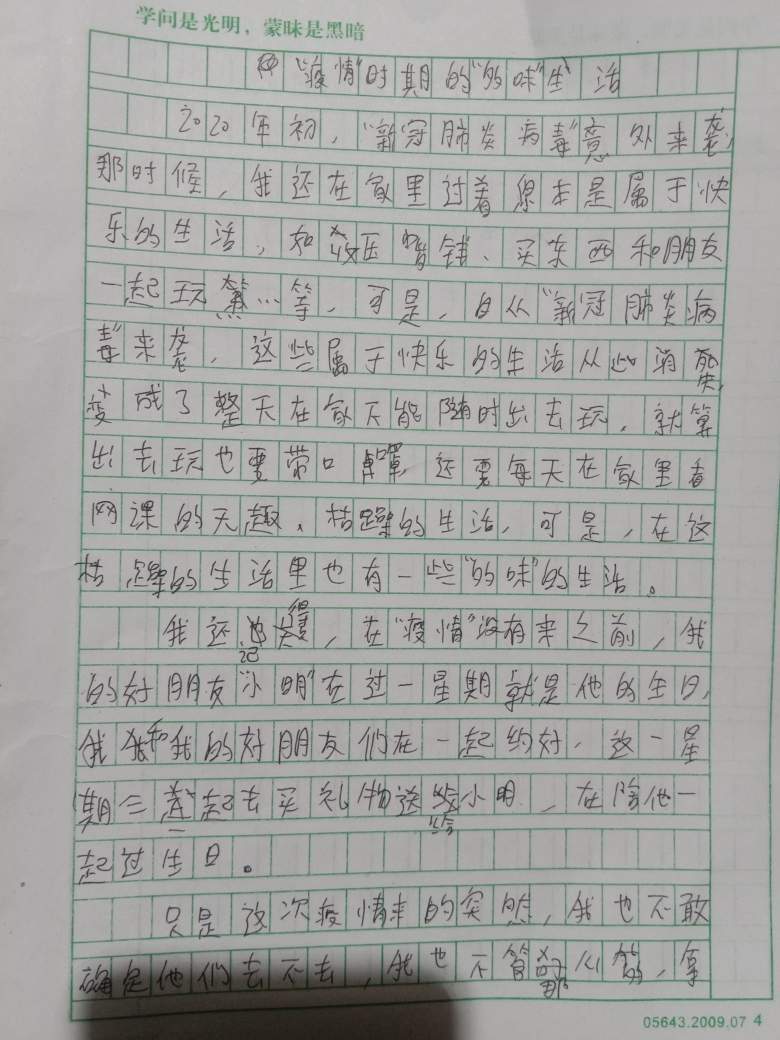 学问是光明，蒙昧是黑暗
“疫情”时期的“的味”生活
2020年初，“新冠肺炎病毒”意外来袭，
那时候，我还在家里过着原本是属于快
乐的生活，如收压岁钱、买东西和朋友
一起玩…等，可是，自从“新冠肺炎病
毒”来袭，这些属于快乐的生活从此消失，
变成了整天在家不能随时出去玩，就算
出去玩也要带口罩，还要每天在家里看
网课的无趣、枯躁的生活，可是，在这
枯躁的生活里也有一些“的味”的生活。
我还记得，在“疫情”没有来之前，我
的好朋友“小明”在过一星期就是他的生日，
我和我的好朋友们在一起约好，这一星
期三一起去买礼物送给小明，在陪他一
起过生日。
只是这次疫情来的突然，我也不敢
确定他们去不去，我也不管那么多，拿
05643.2009.07 4